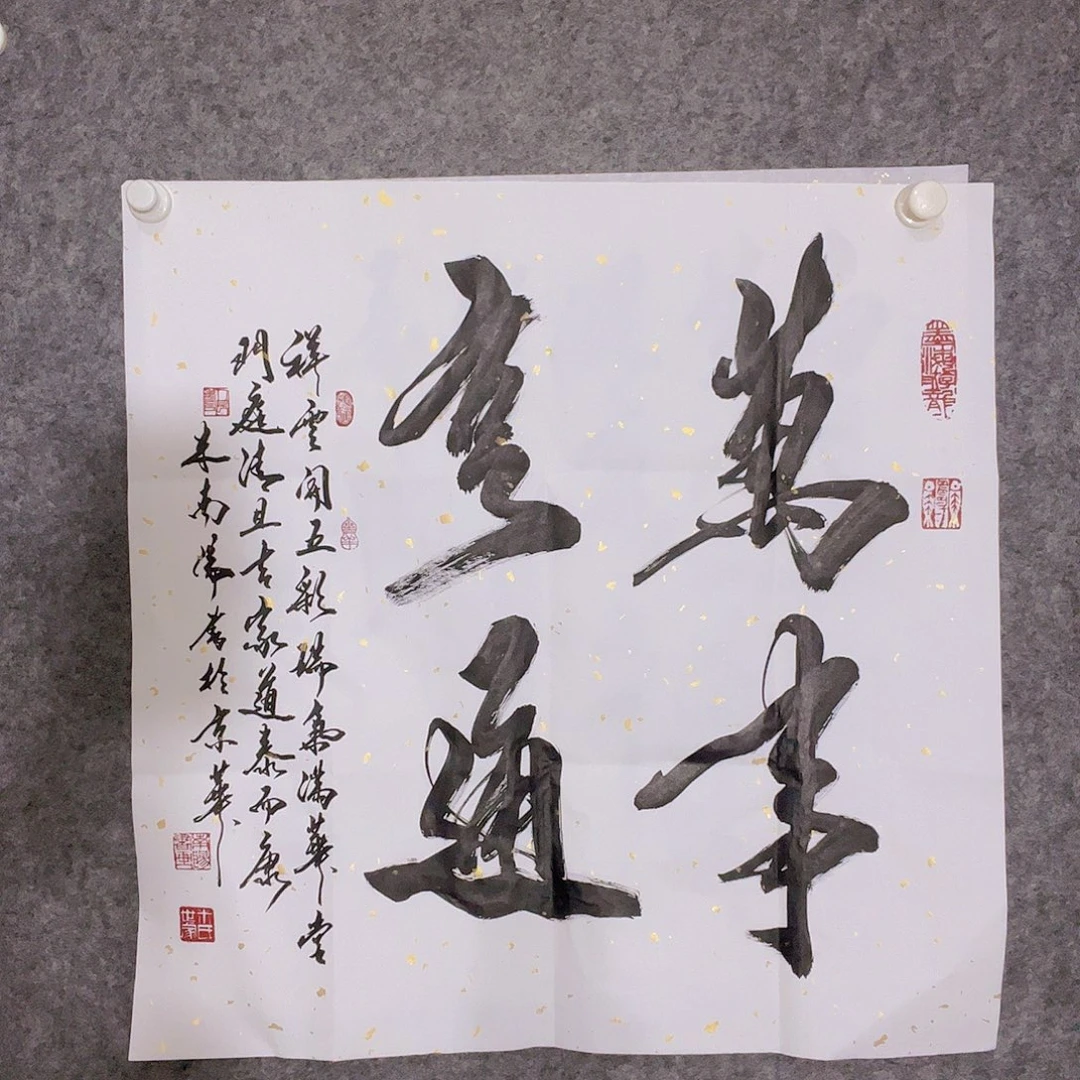 萬事
亨通
祥雲開五彩瑞氣滿華堂
門庭清且吉家道泰而康
米南陽書於京華